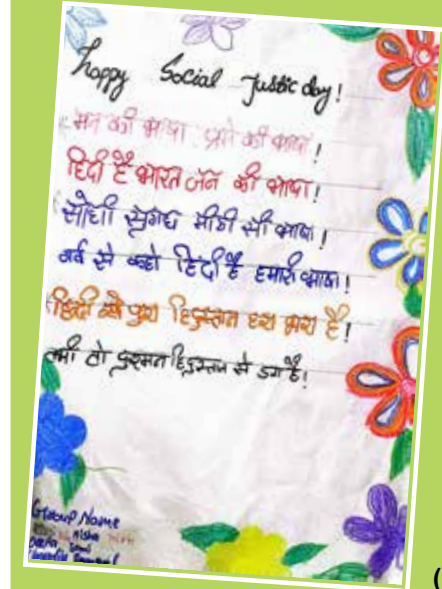 Happy Social Justic day!
मन की भाषा प्रेम की भाषा!
हिंदी है भारत जन की भाषा!
सोंधी सुगंध मीठी सी भाषा!
गर्व से कहो हिंदी है हमारी भाषा!
हिंदी से पुरा हिंदुस्तान हरा भरा है!
तभी तो दुश्मन हिंदुस्तान से डरा है!
Group Name
Nisha
(